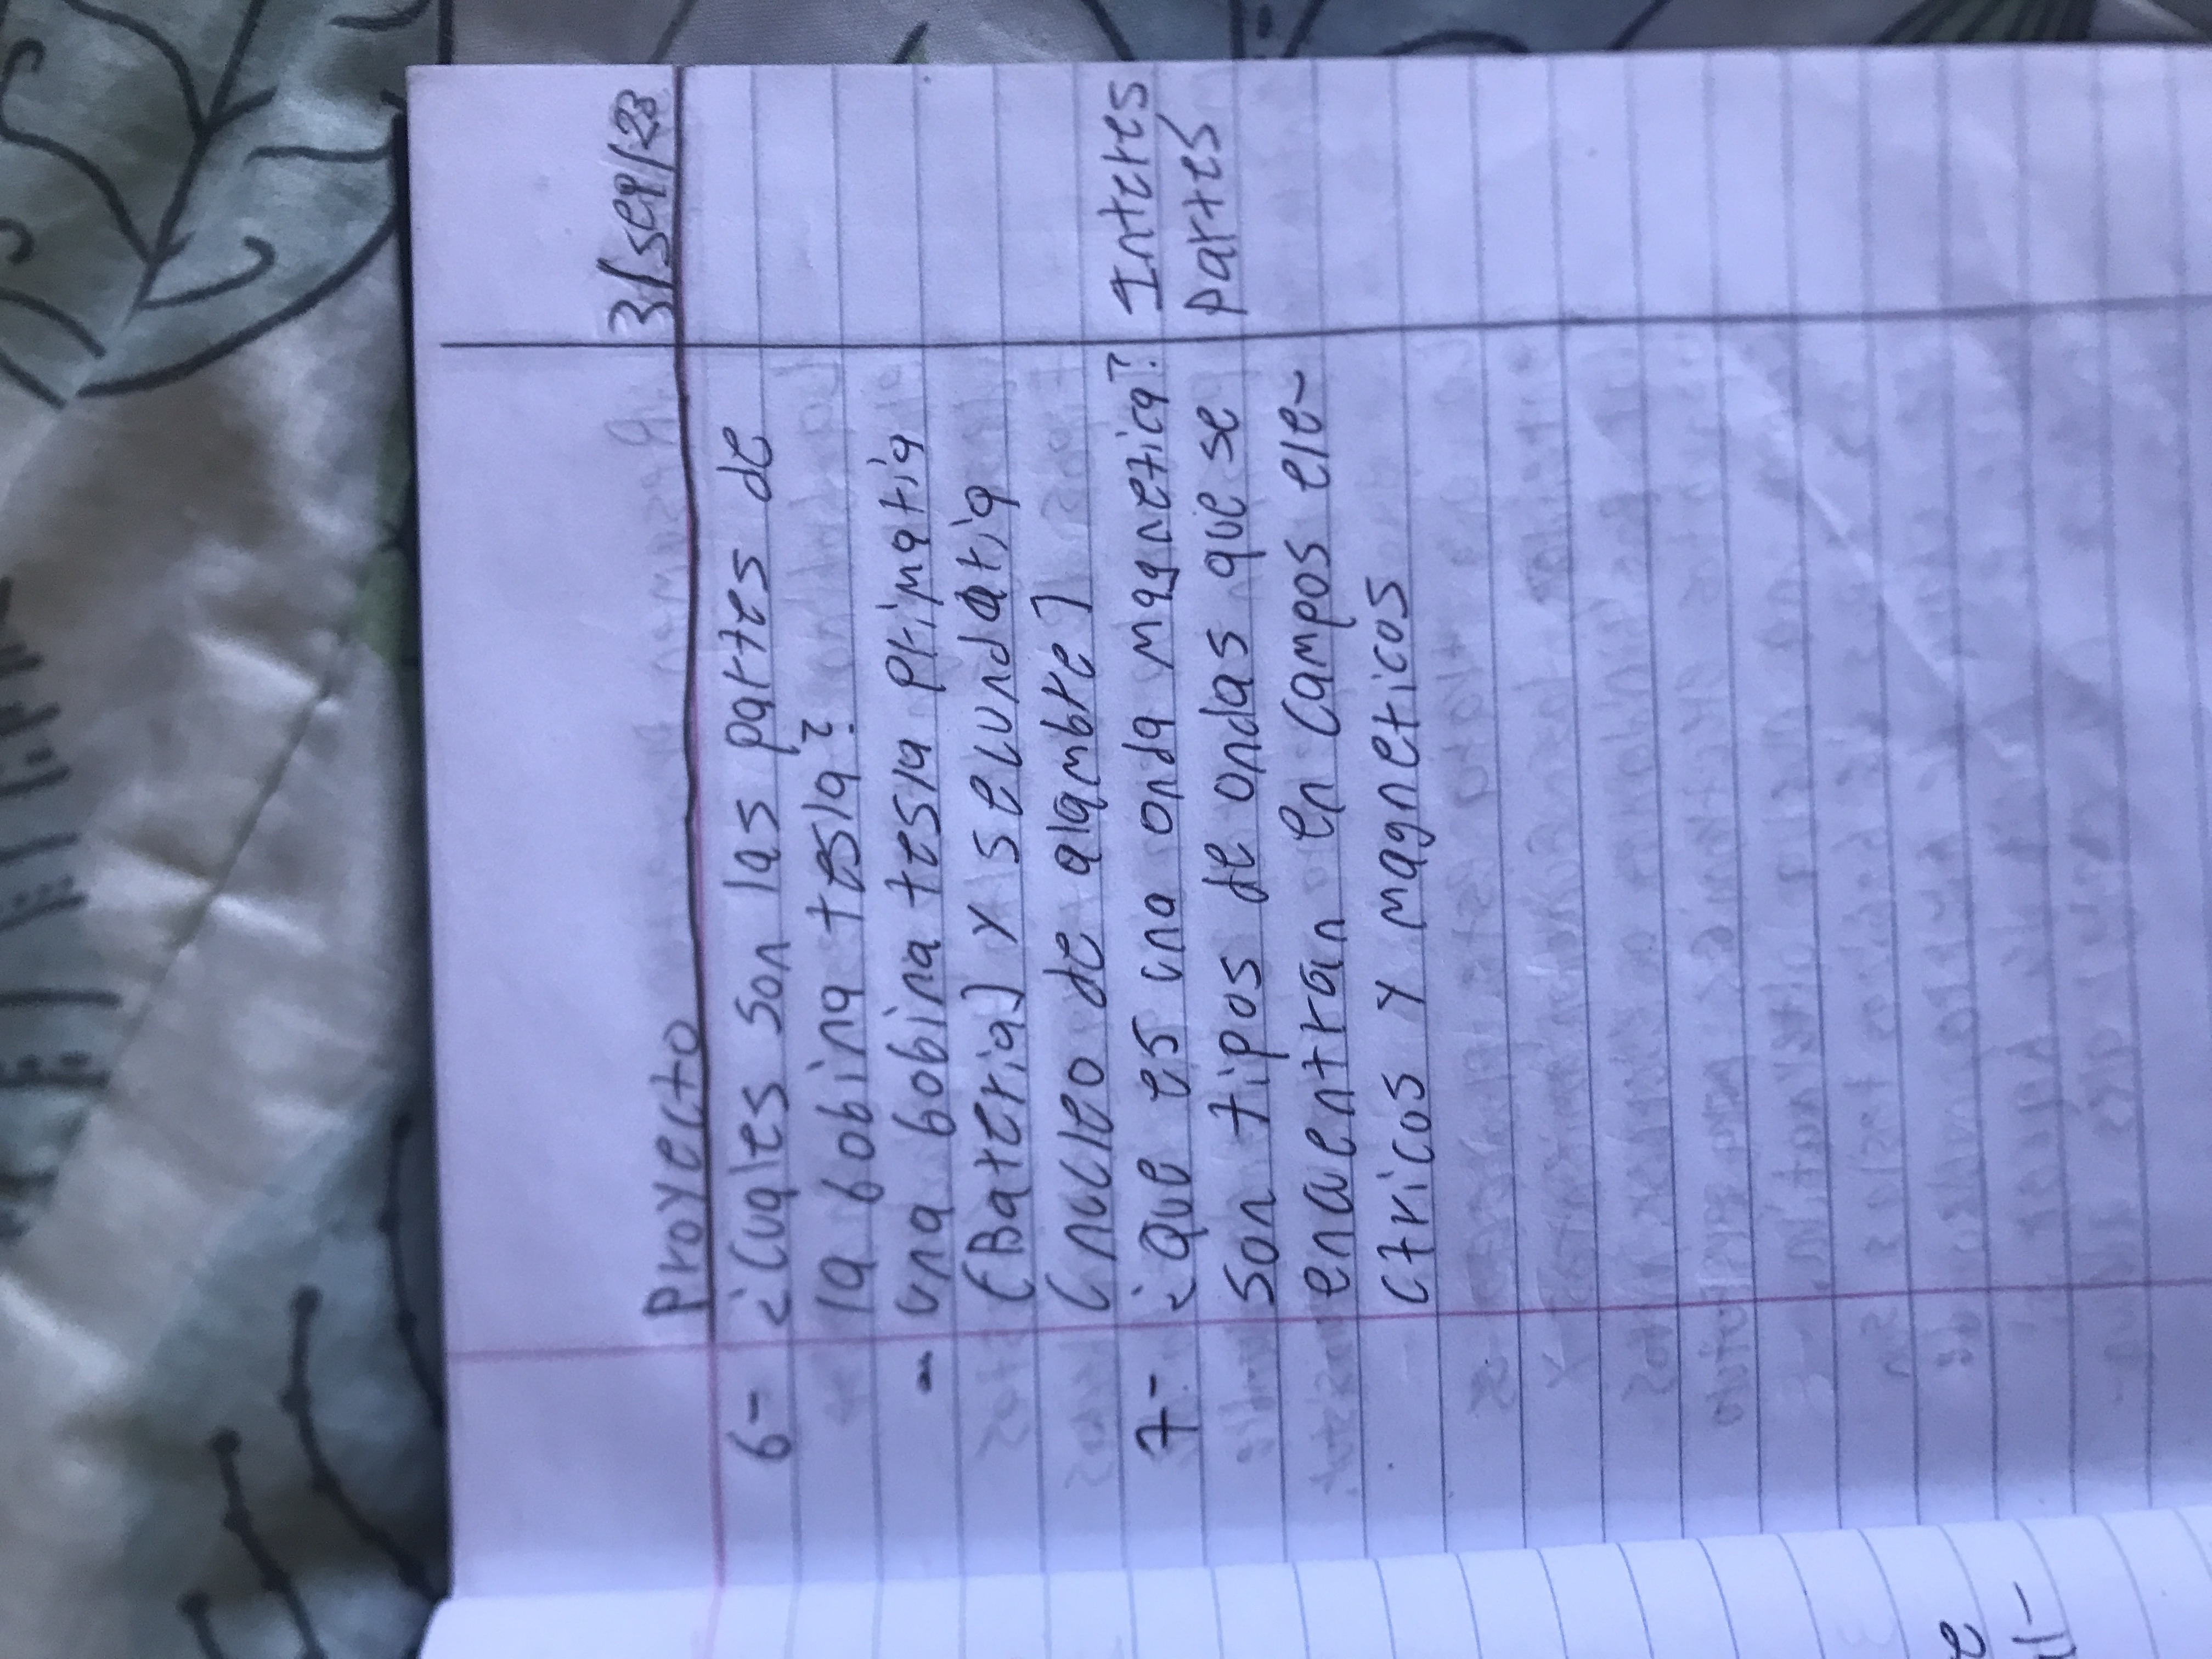 Proyecto 3/sep/23
6- ¿Cuales son las partes de
la bobina tesla?
- una bobina tesla primaria
(Bateria) y secundaria
(nucleo de alambre)
7- ¿Que es una onda magnetica? Interes
Son tipos de ondas que se partes
encuentran en campos ele-
ctricos y magneticos